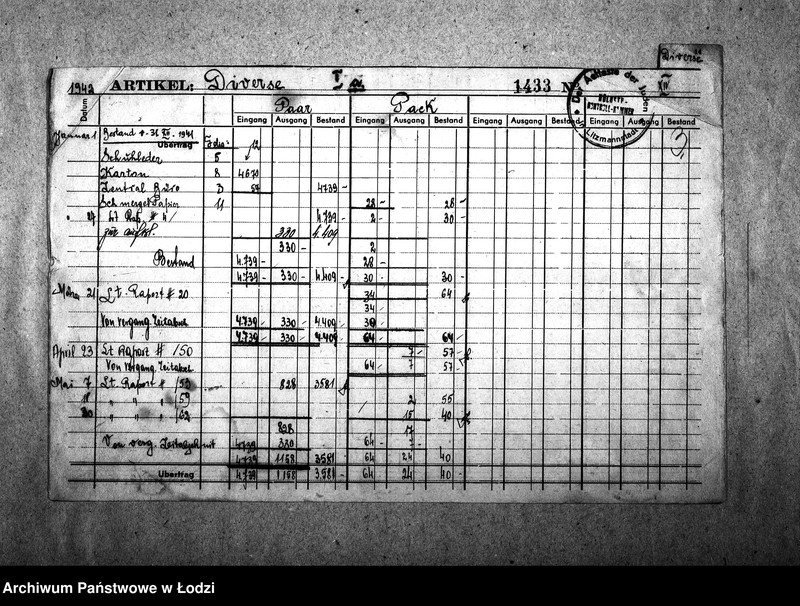 Diverse
1942 ARTIKEL: Diverse I 1433
Der Älteste der Juden
Litzmannstadt
Datum Paar Pack
Eingang Ausgang Bestand Eingang Ausgang Bestand Eingang Ausgang Bestand Eingang Ausgang Bestand
Januar 1 Bestand 31 XII. 1941 3
Übertrag Folio: 12
Schuhleder 5
Karton 8 4670
Zentral Büro 3 4739 -
Schmergel Papier 11 28 - 28 -
27 4.739 - 2 - 30 -
330 4.409
330 - 2
Bestand 4.739 - 28 -
4.739 - 330 - 4.409 - 30 - 30 -
März 21 Lt. Raport # 20 34 64
34 -
Von vergang. Zeitabsch 4.739 - 330 - 4.409 - 30 -
4.739 330 4.409 64 - 64 -
April 23 Lt Raport # 150 7 - 57 -
Von vergang. Zeitabsch 64 7 57 -
Mai 7 Lt. Raport # /53 828 3581
18 " " " /59 2 55
20 " " " /62 15 40
828 17
Von verg. Zeitabschnitt 4739 330 64 - 7 -
4739 1158 3581 64 24 40
Übertrag 4739 1158 3.581 - 64 24 40 -
Archiwum Państwowe w Łodzi